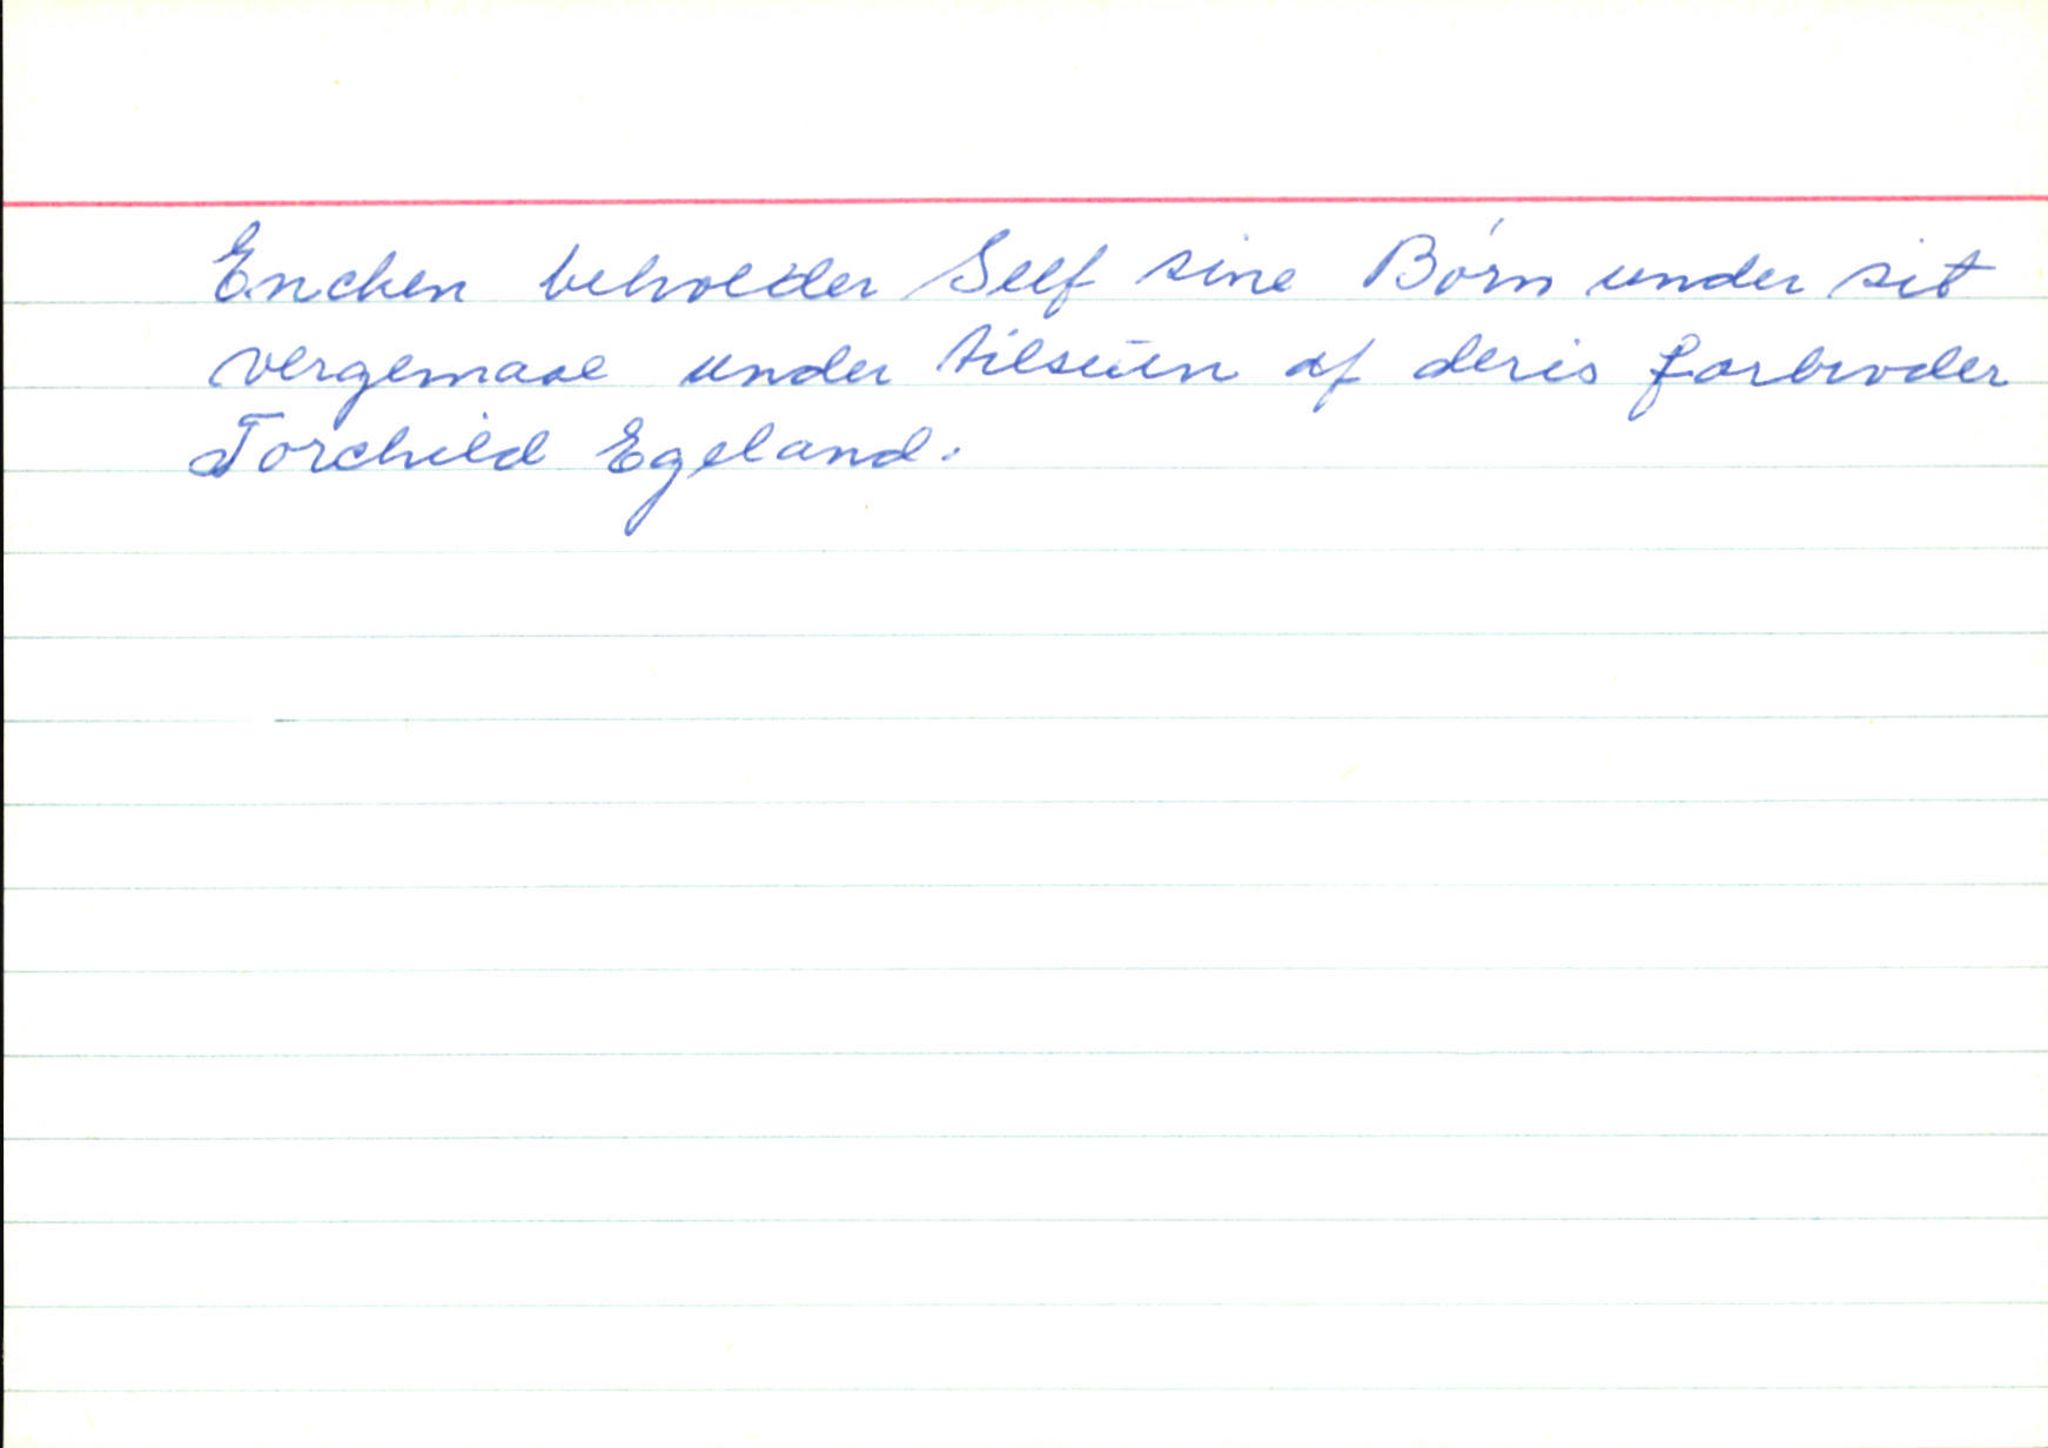 Encken beholder Self sine Børn under sit
vergemaal under tilsiun af deris farbroder
Torchild Egeland.